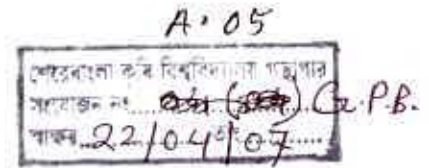 A. 05
শেরেবাংলা কৃষি বিশ্ববিদ্যালয় গ্রন্থাগার
সংযোজন নং G.P.B.
স্বাক্ষর 22/04/07